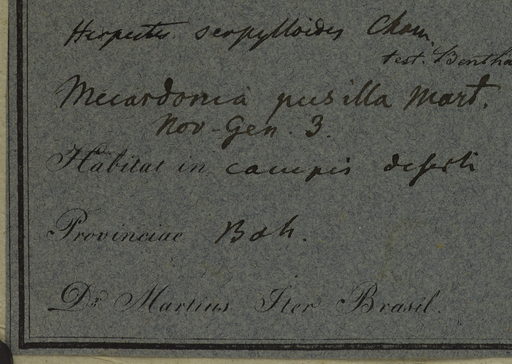 Herpestes serpylloides Cham.
test. Bentha
Mecardonia pusilla Mart.
Nov. Gen. 3.
Habitat in campis deserti
Provinciae Bah.
Dr. Martius Iter Brasil.